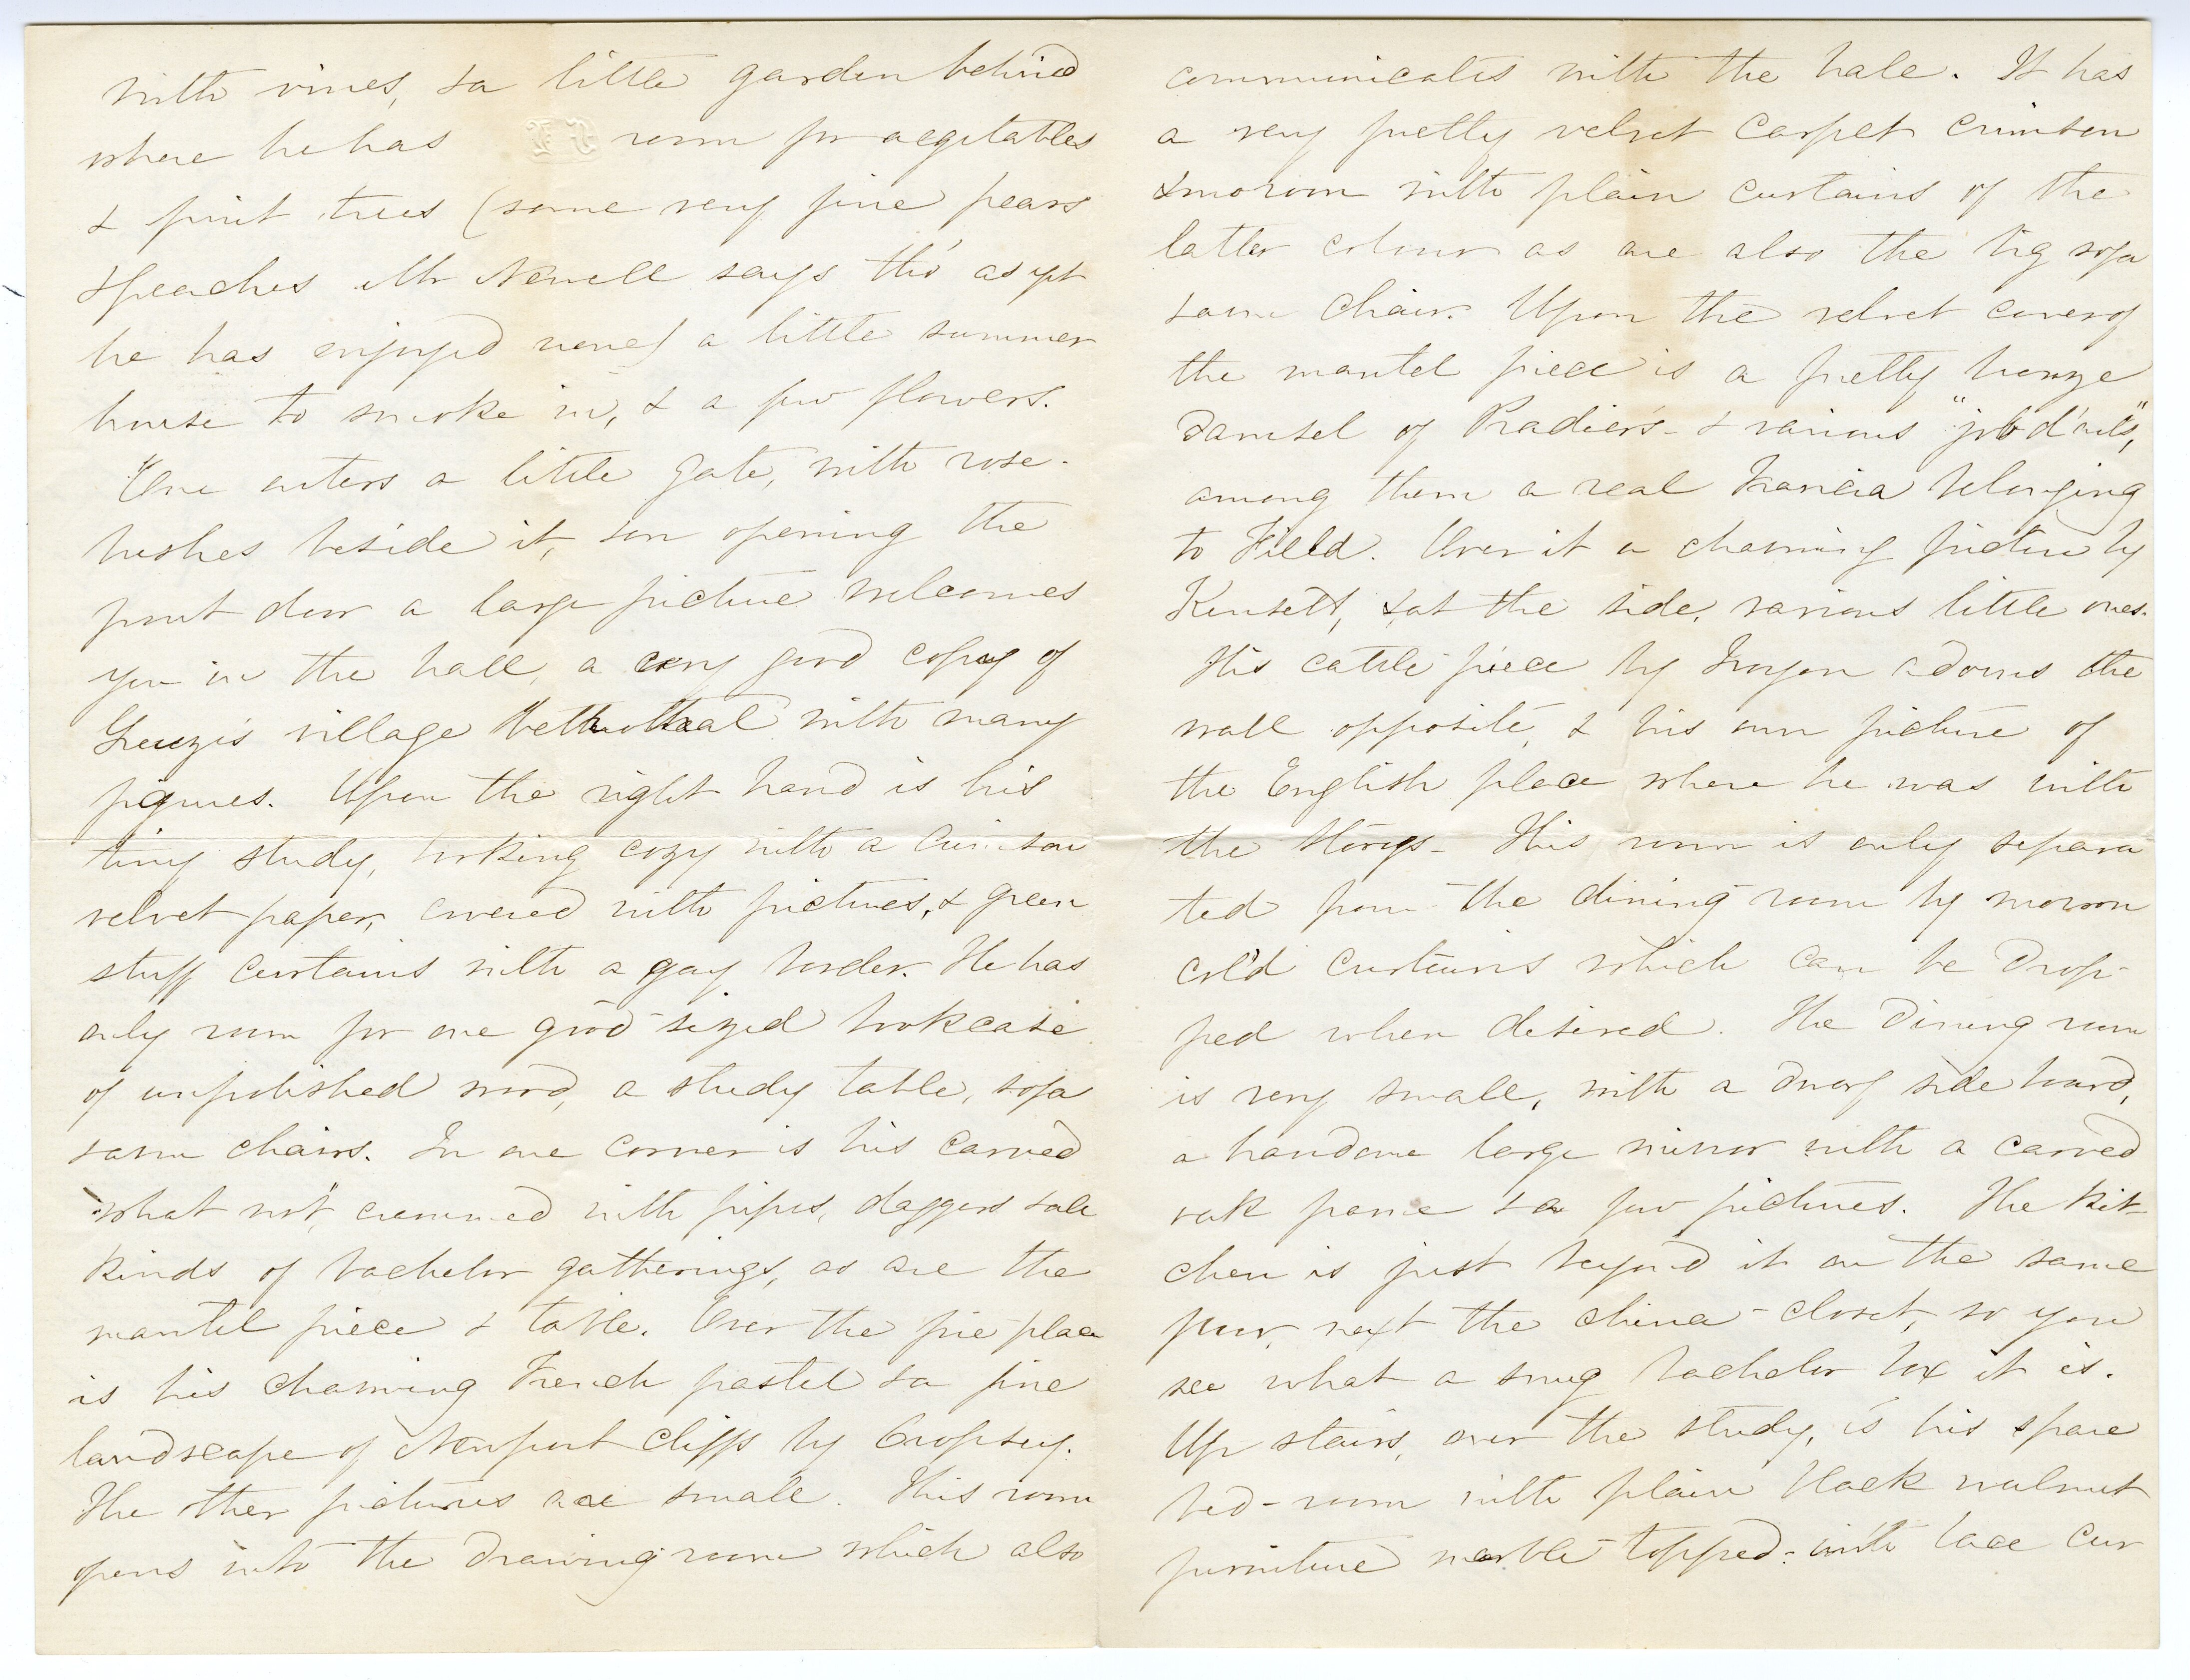 with vines, & a little garden behind
where he has room for vegetables
& fruit trees (some very fine pears
& peaches Mr Newell says tho' as yet
he has enjoyed none) a little summer
house to smoke in, & a few flowers.
One enters a little gate, with rose-
bushes beside it, & on opening the
front door a large picture welcomes
you in the hall, a very good copy of
Greuze's village betrothal with many
figures. Upon the right hand is his
tiny study, looking cozy with a crimson
velvet paper, covered with pictures, & green
stuff curtains with a gay border. He has
only room for one good sized bookcase
of unpolished wood, a study table, sofa
& arm chairs. In one corner is his carved
"what not", crammed with pipes, daggers & all
kinds of bachelor gatherings, as are the
mantel piece & table. Over the fire place
is his charming French pastel & a fine
landscape of Newport Cliffs by Cropsey.
The other pictures are small. This room
opens into the drawing room which also
communicates with the hall. It has
a very pretty velvet carpet crimson
& maroon with plain curtains of the
latter colour as are also the big sofa
& arm chair. Upon the velvet cover of
the mantel piece is a pretty bronze
damsel of Pradier's - & various
among them a real Francia belonging
to Field. Over it a charming picture by
Kensett, & at the side, various little ones.
His cattle piece by Troyon adorns the
wall opposite, & his own picture of
the English place where he was with
the Storys - This room is only separa
ted from the dining room by maroon
col'd curtains which can be drop-
ped when desired. The dining room
is very small, with a dwarf side board,
a handsome large mirror with a carved
oak frame & a few pictures. The kit-
chen is just beyond it on the same
floor, next the china-closet, so you
see what a snug bachelor box it is.
Up stairs, over the study, is his spare
bed-room with plain black walnut
furniture marble-topped - with lace cur